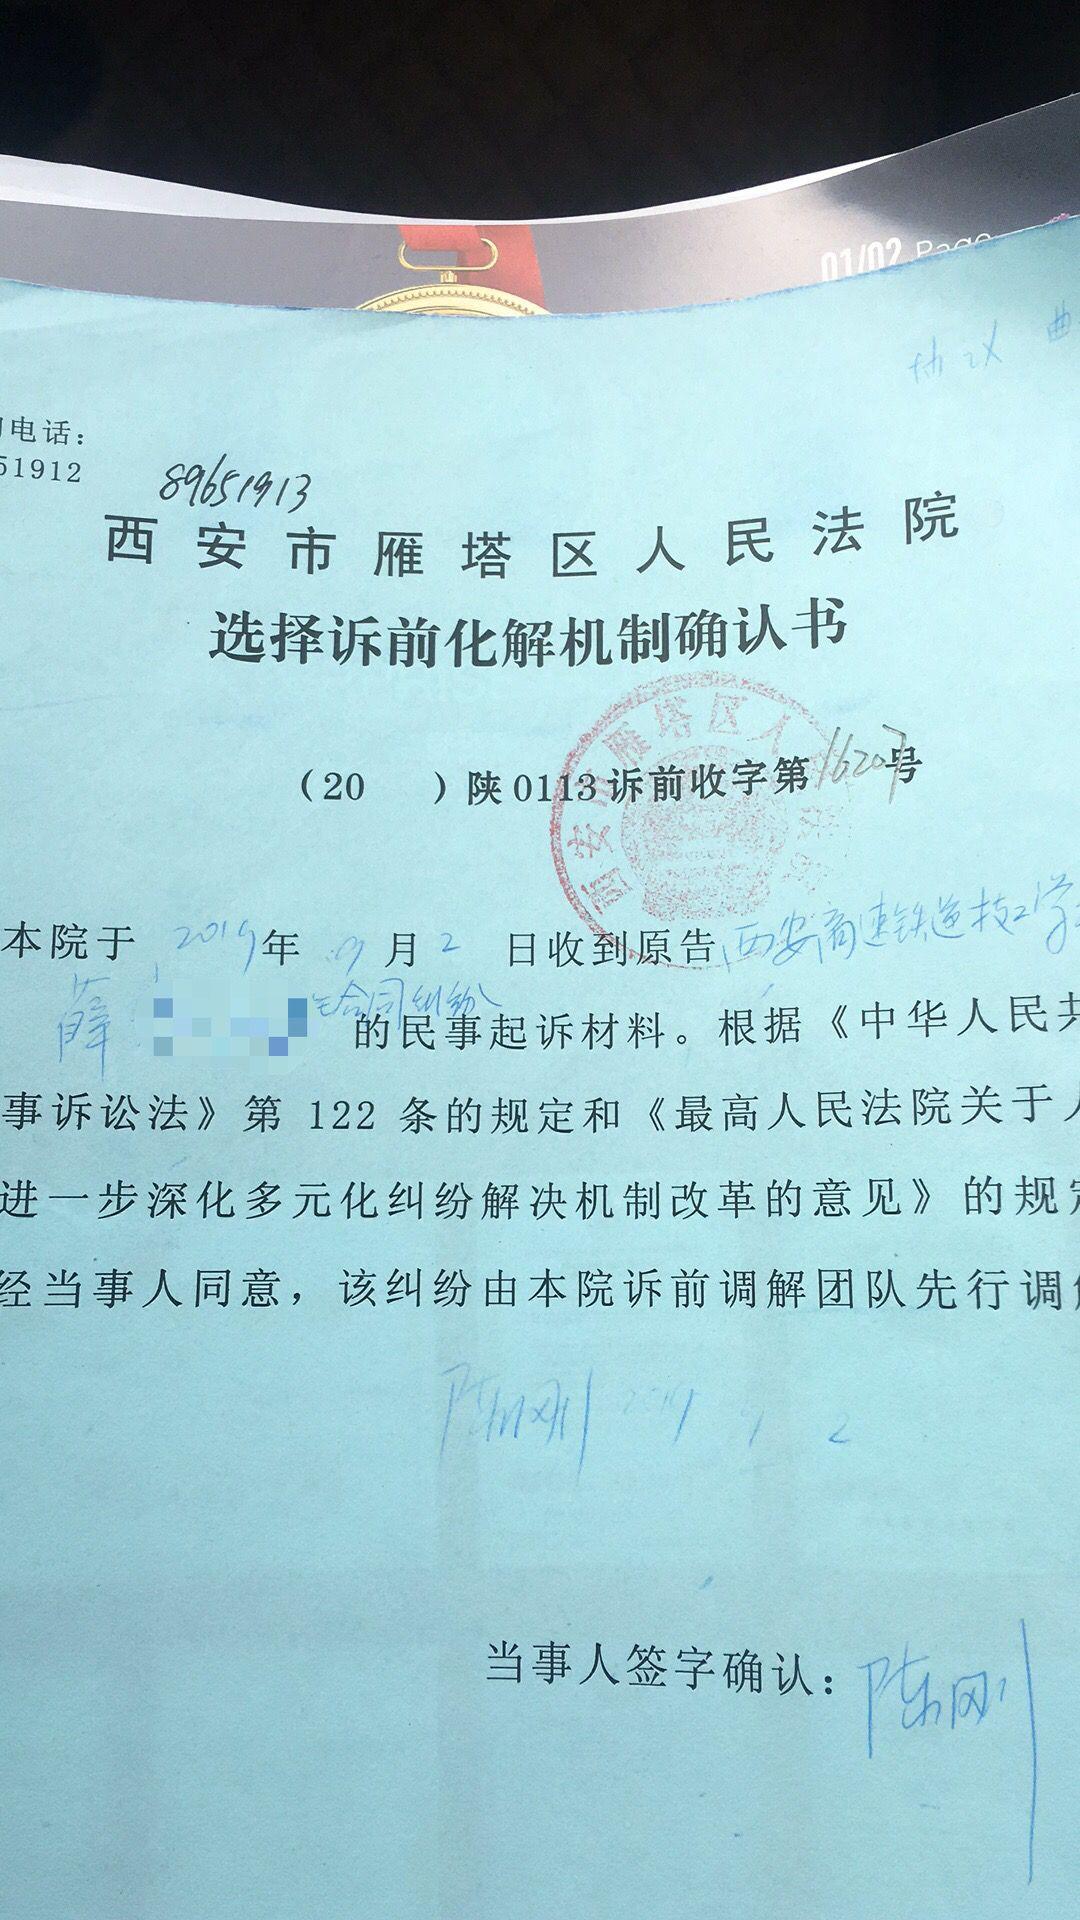 01/02 Page
协议
电话：
51912
89651913
西安市雁塔区人民法院
选择诉前化解机制确认书
（20　　）陕0113诉前收字第16207号
西安市雁塔区人
本院于2019年9月2日收到原告西安高速铁道技工学
薛 合同纠纷的民事起诉材料。根据《中华人民共
事诉讼法》第122条的规定和《最高人民法院关于人
进一步深化多元化纠纷解决机制改革的意见》的规定
经当事人同意，该纠纷由本院诉前调解团队先行调解
陈刚 2019 9 2
当事人签字确认：陈刚